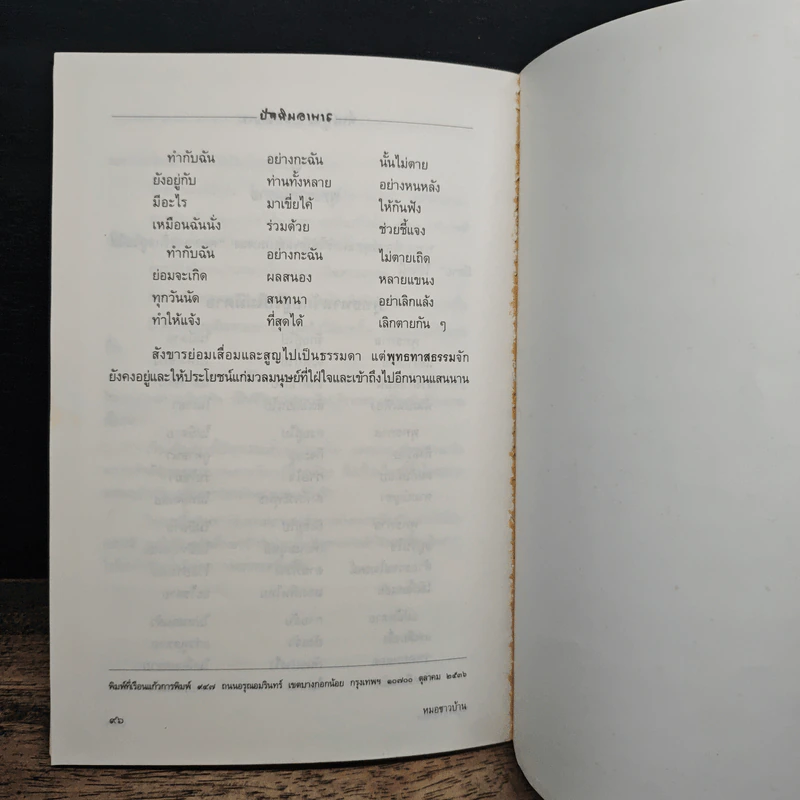 ปัจฉิมอาพาธ
ทำกับฉัน อย่างกะฉัน นั้นไม่ตาย
ยังอยู่กับ ท่านทั้งหลาย อย่างหนหลัง
มีอะไร มาเขี่ยไค้ ให้กันฟัง
เหมือนฉันนั่ง ร่วมด้วย ช่วยชี้แจง
ทำกับฉัน อย่างกะฉัน ไม่ตายเถิด
ย่อมจะเกิด ผลสนอง หลายแขนง
ทุกวันนัด สนทนา อย่าเลิกแล้ง
ทำให้แจ้ง ที่สุดได้ เลิกตายกัน ๆ
สังขารย่อมเสื่อมและสูญไปเป็นธรรมดา แต่พุทธทาสธรรมจัก
ยังคงอยู่และให้ประโยชน์แก่มวลมนุษย์ที่ใฝ่ใจและเข้าถึงไปอีกนานแสนนาน
พิมพ์ที่เรือนแก้วการพิมพ์ ๙๔๗ ถนนอรุณอมรินทร์ เขตบางกอกน้อย กรุงเทพฯ ๑๐๗๐๐ ตุลาคม ๒๕๓๖
๙๖ หมอชาวบ้าน